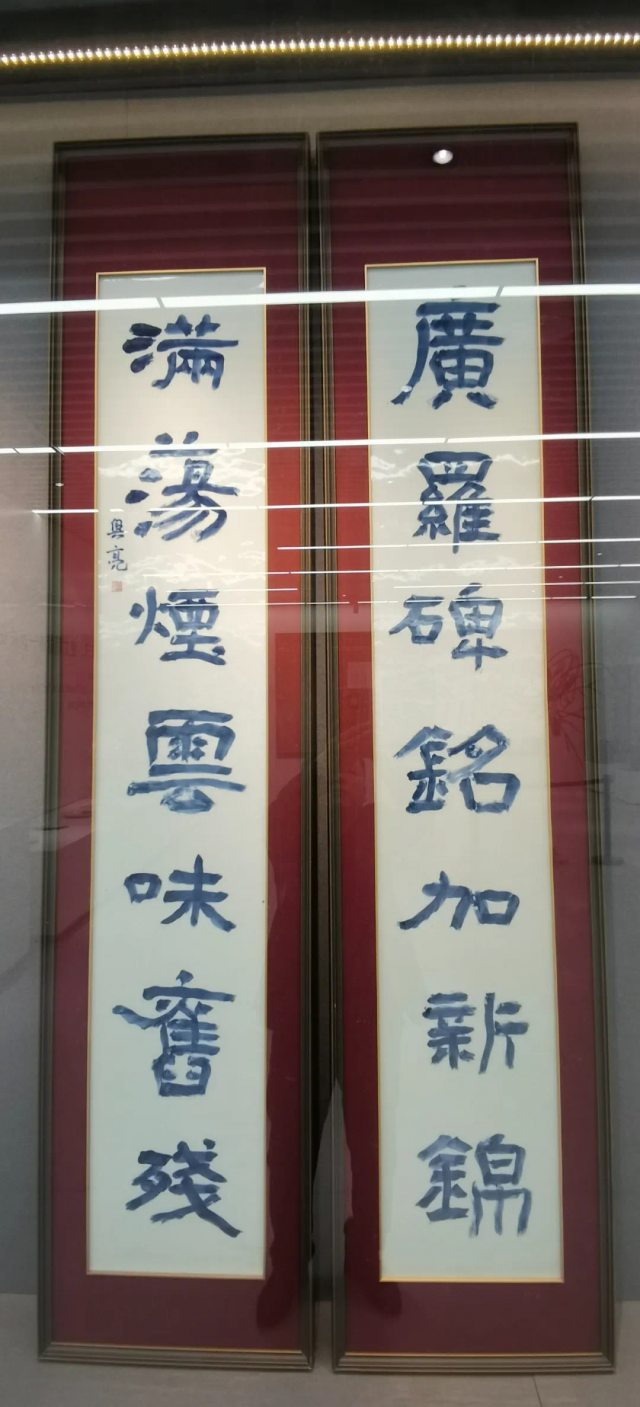 廣羅碑銘加新錦
滿蕩煙雲味舊殘
興亮